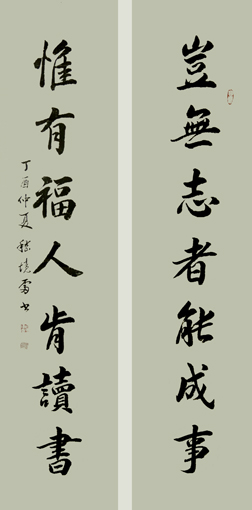 豈無志者能成事
惟有福人肯讀書
丁酉仲夏